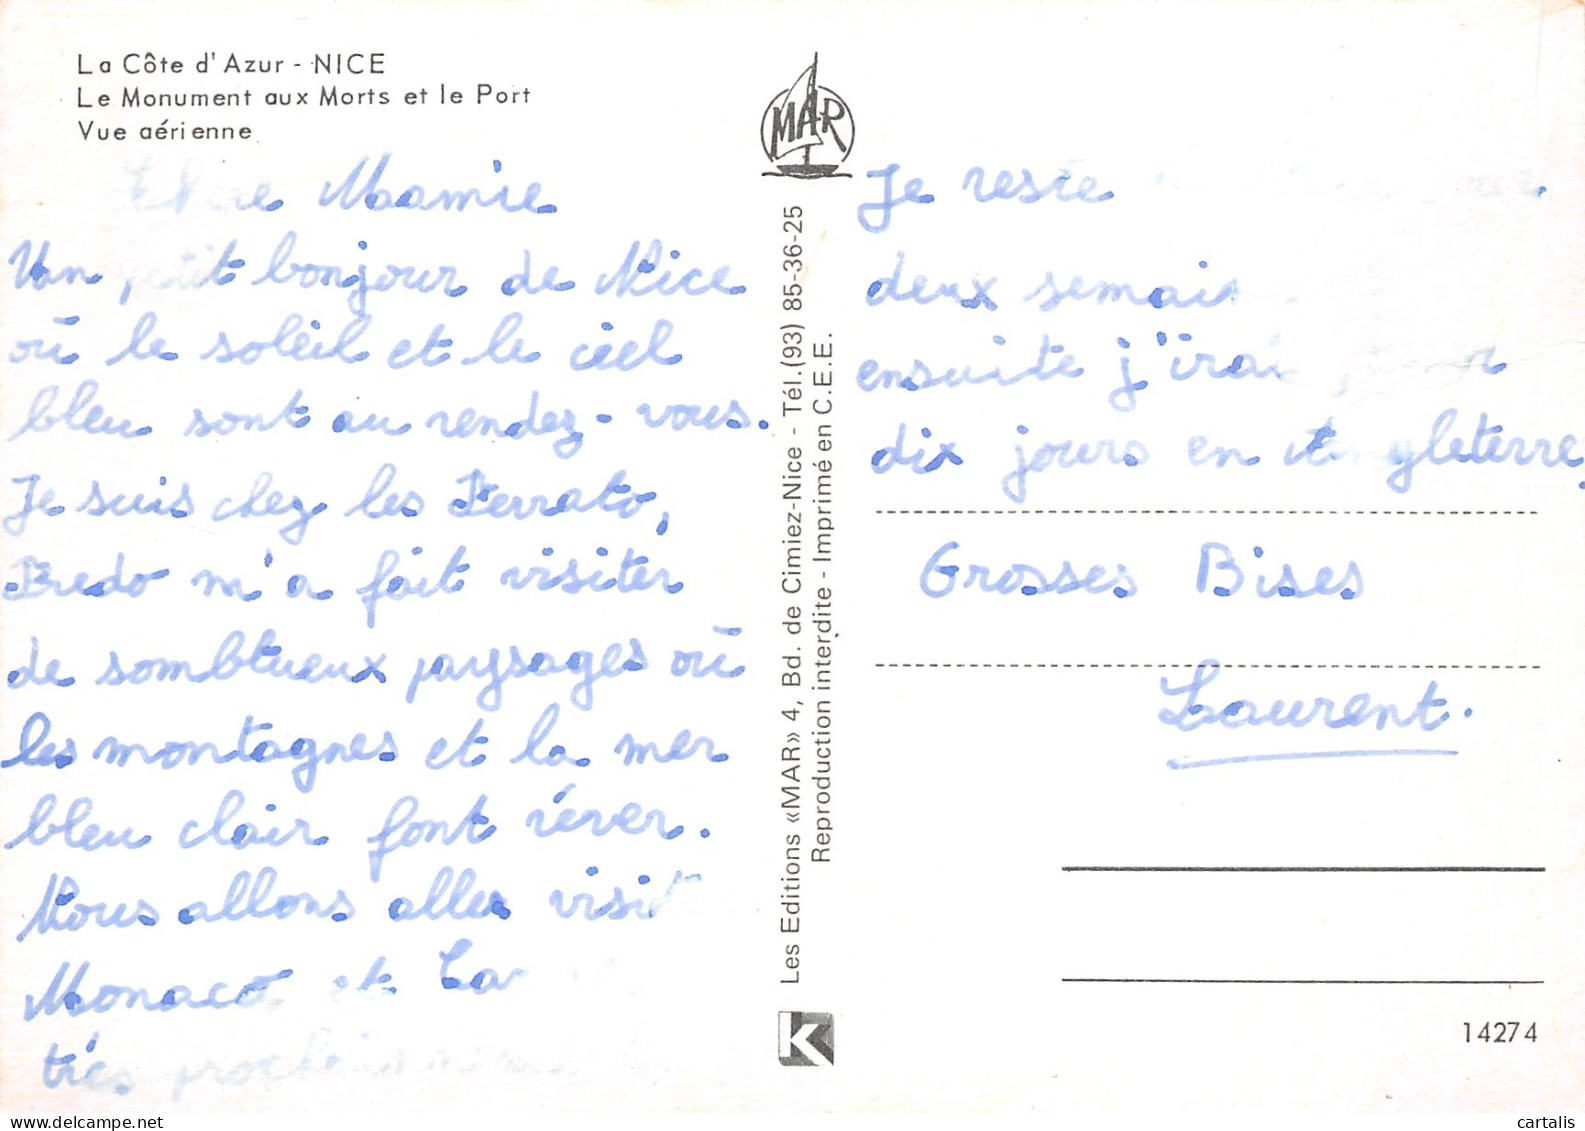 La Côte d'Azur - NICE
Le Monument aux Morts et le Port
Vue aérienne
Mamie
Un petit bonjour de Nice
où le soleil et le ciel
bleu sont au rendez-vous.
Je suis chez les Ferrato,
Bredo m'a fait visiter
de sombtueux paysages où
les montagnes et la mer
bleu clair font réver.
Nous allons aller
Monaco et
trés prochainement
MAR
Les Editions «MAR» 4, Bd. de Cimiez-Nice - Tél.(93) 85-36-25
Reproduction interdite - Imprimé en C.E.E.
K
Je reste
deux
ensuite j'irai
dix jours en Angleterre.
Grosses Bises
Laurent.
14274
cartalis